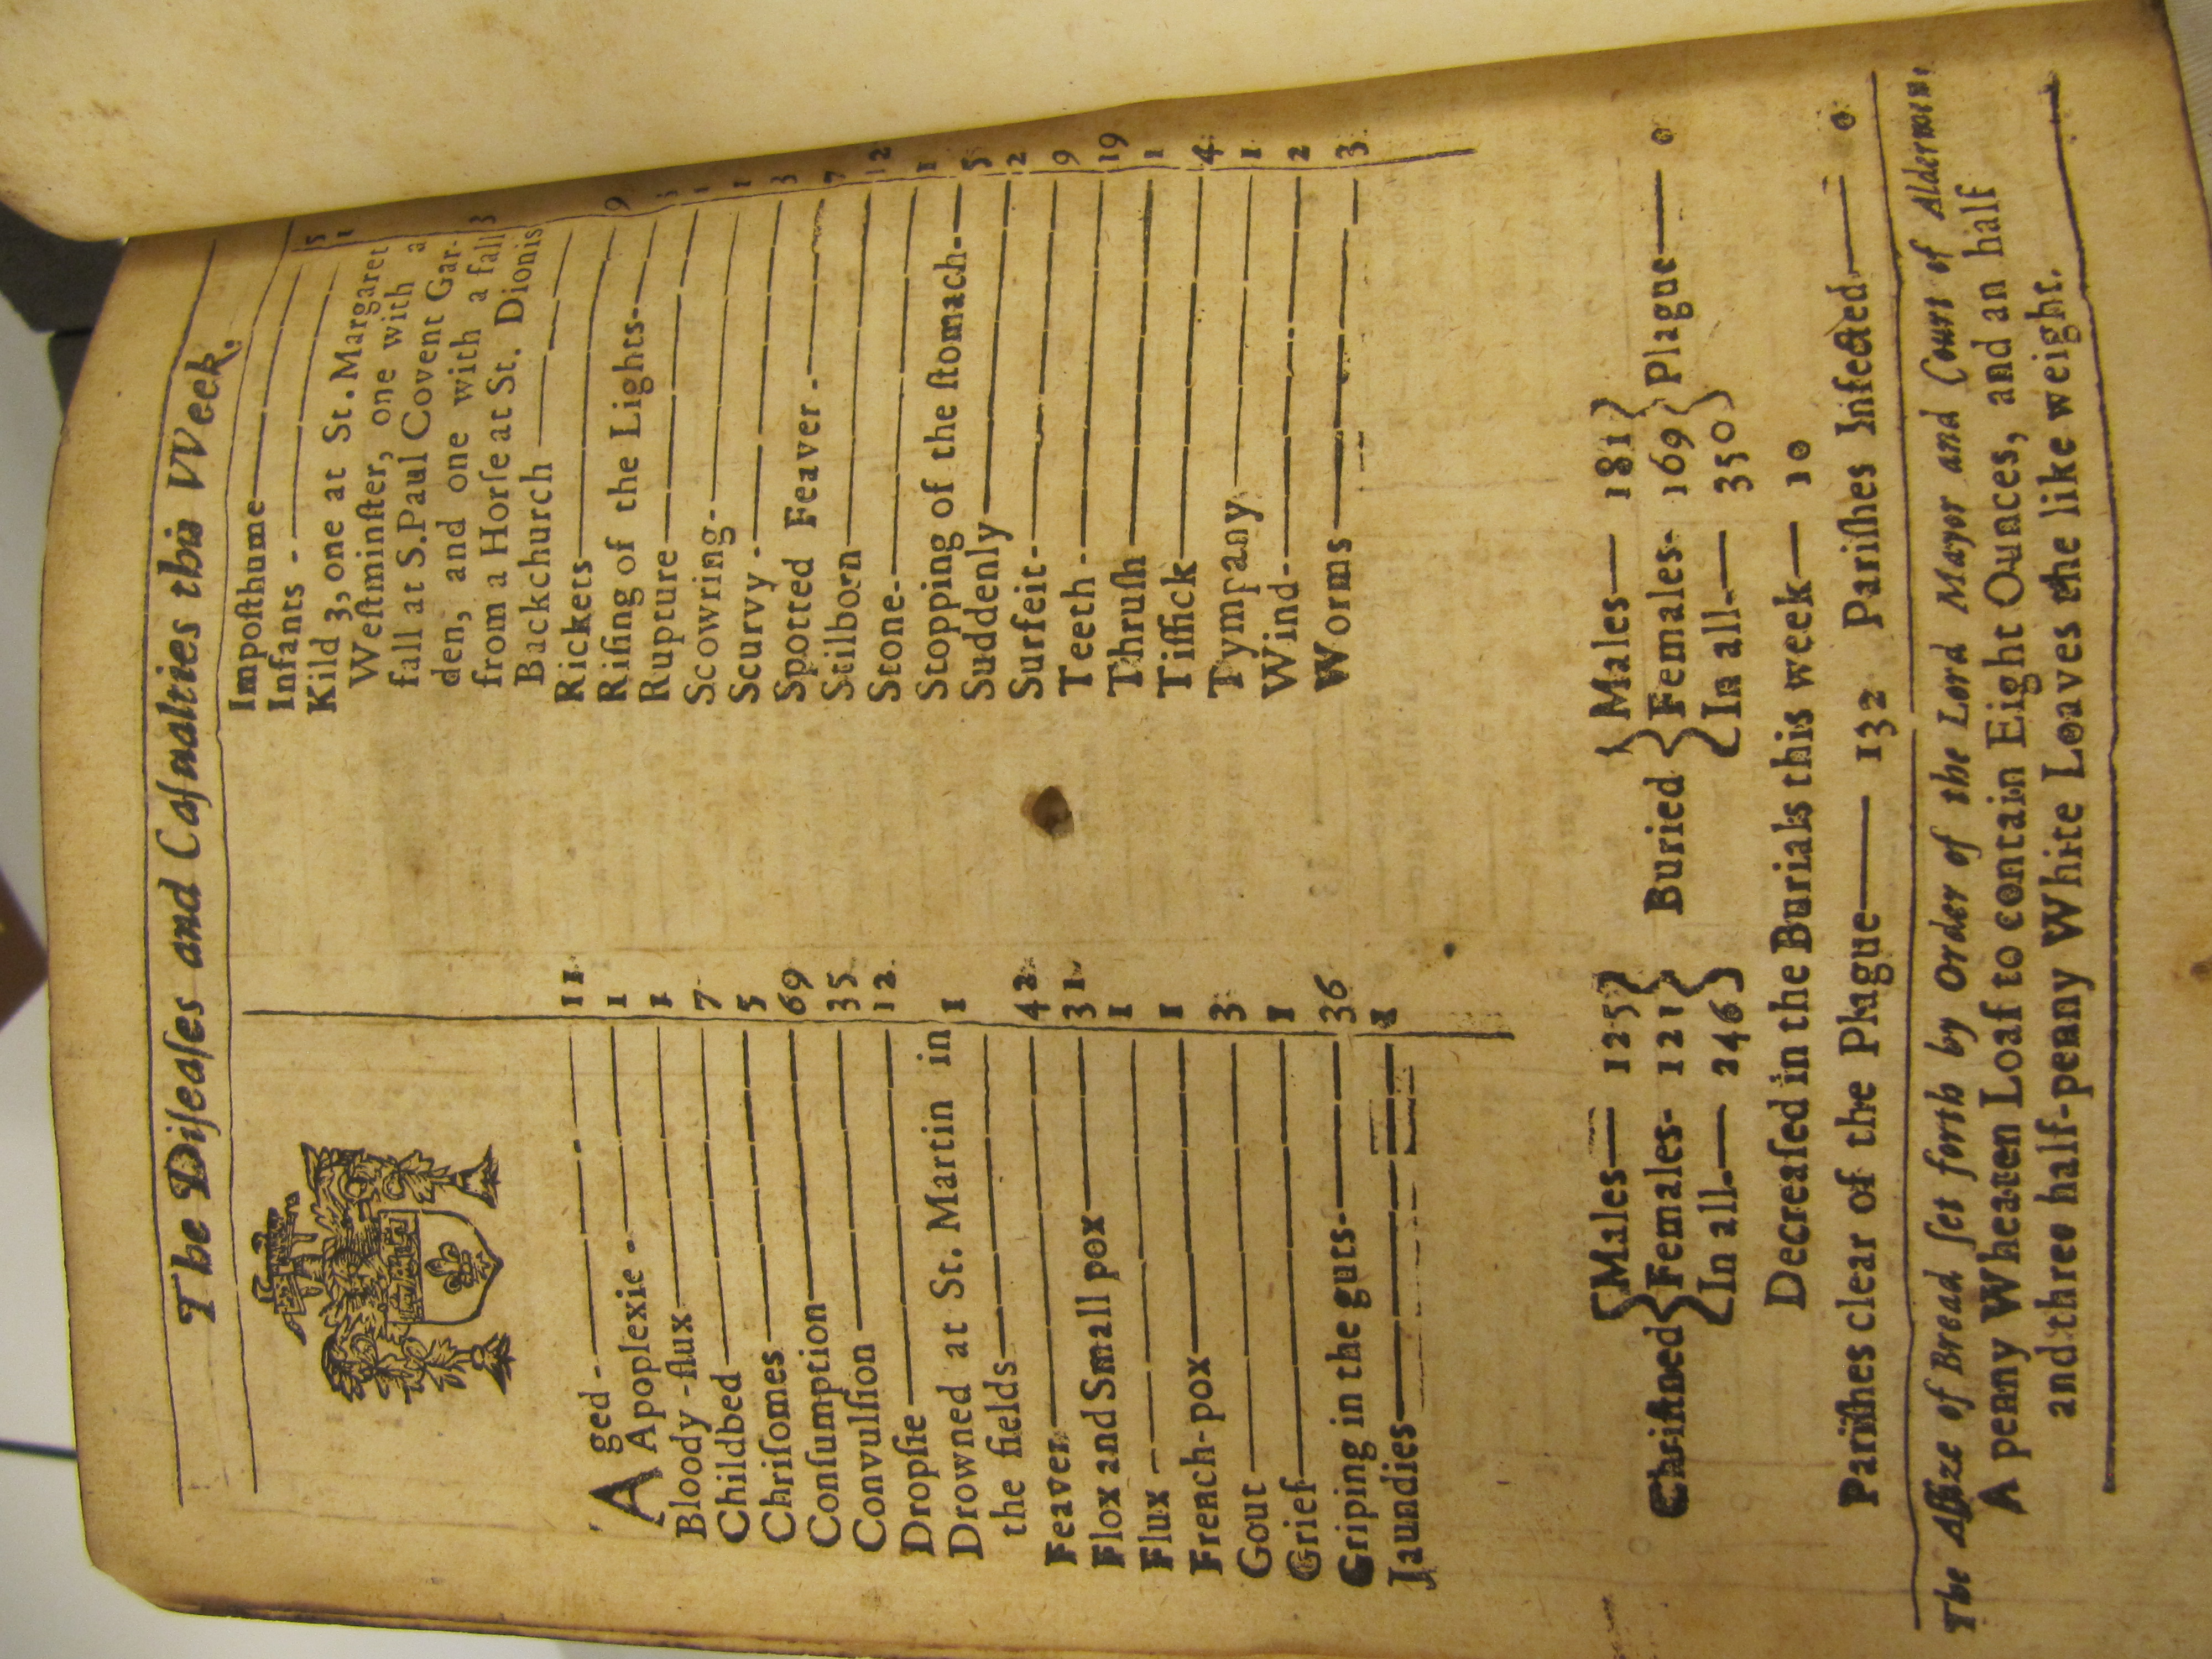 The Diſeaſes and Caſualties this VVeek.
Aged 11
Apoplexie 1
Bloody-flux 1
Childbed 7
Chriſomes 5
Conſumption 69
Convulſion 35
Dropſie 12
Drowned at St. Martin in
the fields 1
Feaver 42
Flox and Small pox 31
Flux 1
French-pox 1
Gout 3
Grief 1
Griping in the guts 36
Jaundies 1
Impoſthume 5
Infants 1
Kild 3, one at St. Margaret
Weſtminſter, one with a
fall at S. Paul Covent Gar-
den, and one with a fall
from a Horſe at St. Dionis
Backchurch 3
Rickets 9
Riſing of the Lights 3
Rupture 1
Scowring 1
Scurvy 3
Spotted Feaver 7
Stilborn 12
Stone 1
Stopping of the ſtomach 5
Suddenly 2
Surfeit 9
Teeth 19
Thruſh 1
Tiſſick 4
Tympany 1
Wind 2
Worms 3
Chriſtned { Males 125 Females 121 In all 246 } Buried { Males 181 Females 169 In all 350 } Plague 0
Decreaſed in the Burials this week 10
Pariſhes clear of the Plague 132 Pariſhes Infected 0
The Aſſize of Bread ſet forth by Order of the Lord Mayor and Court of Aldermen,
A penny Wheaten Loaf to contain Eight Ounces, and an half
and three half-penny White Loaves the like weight.